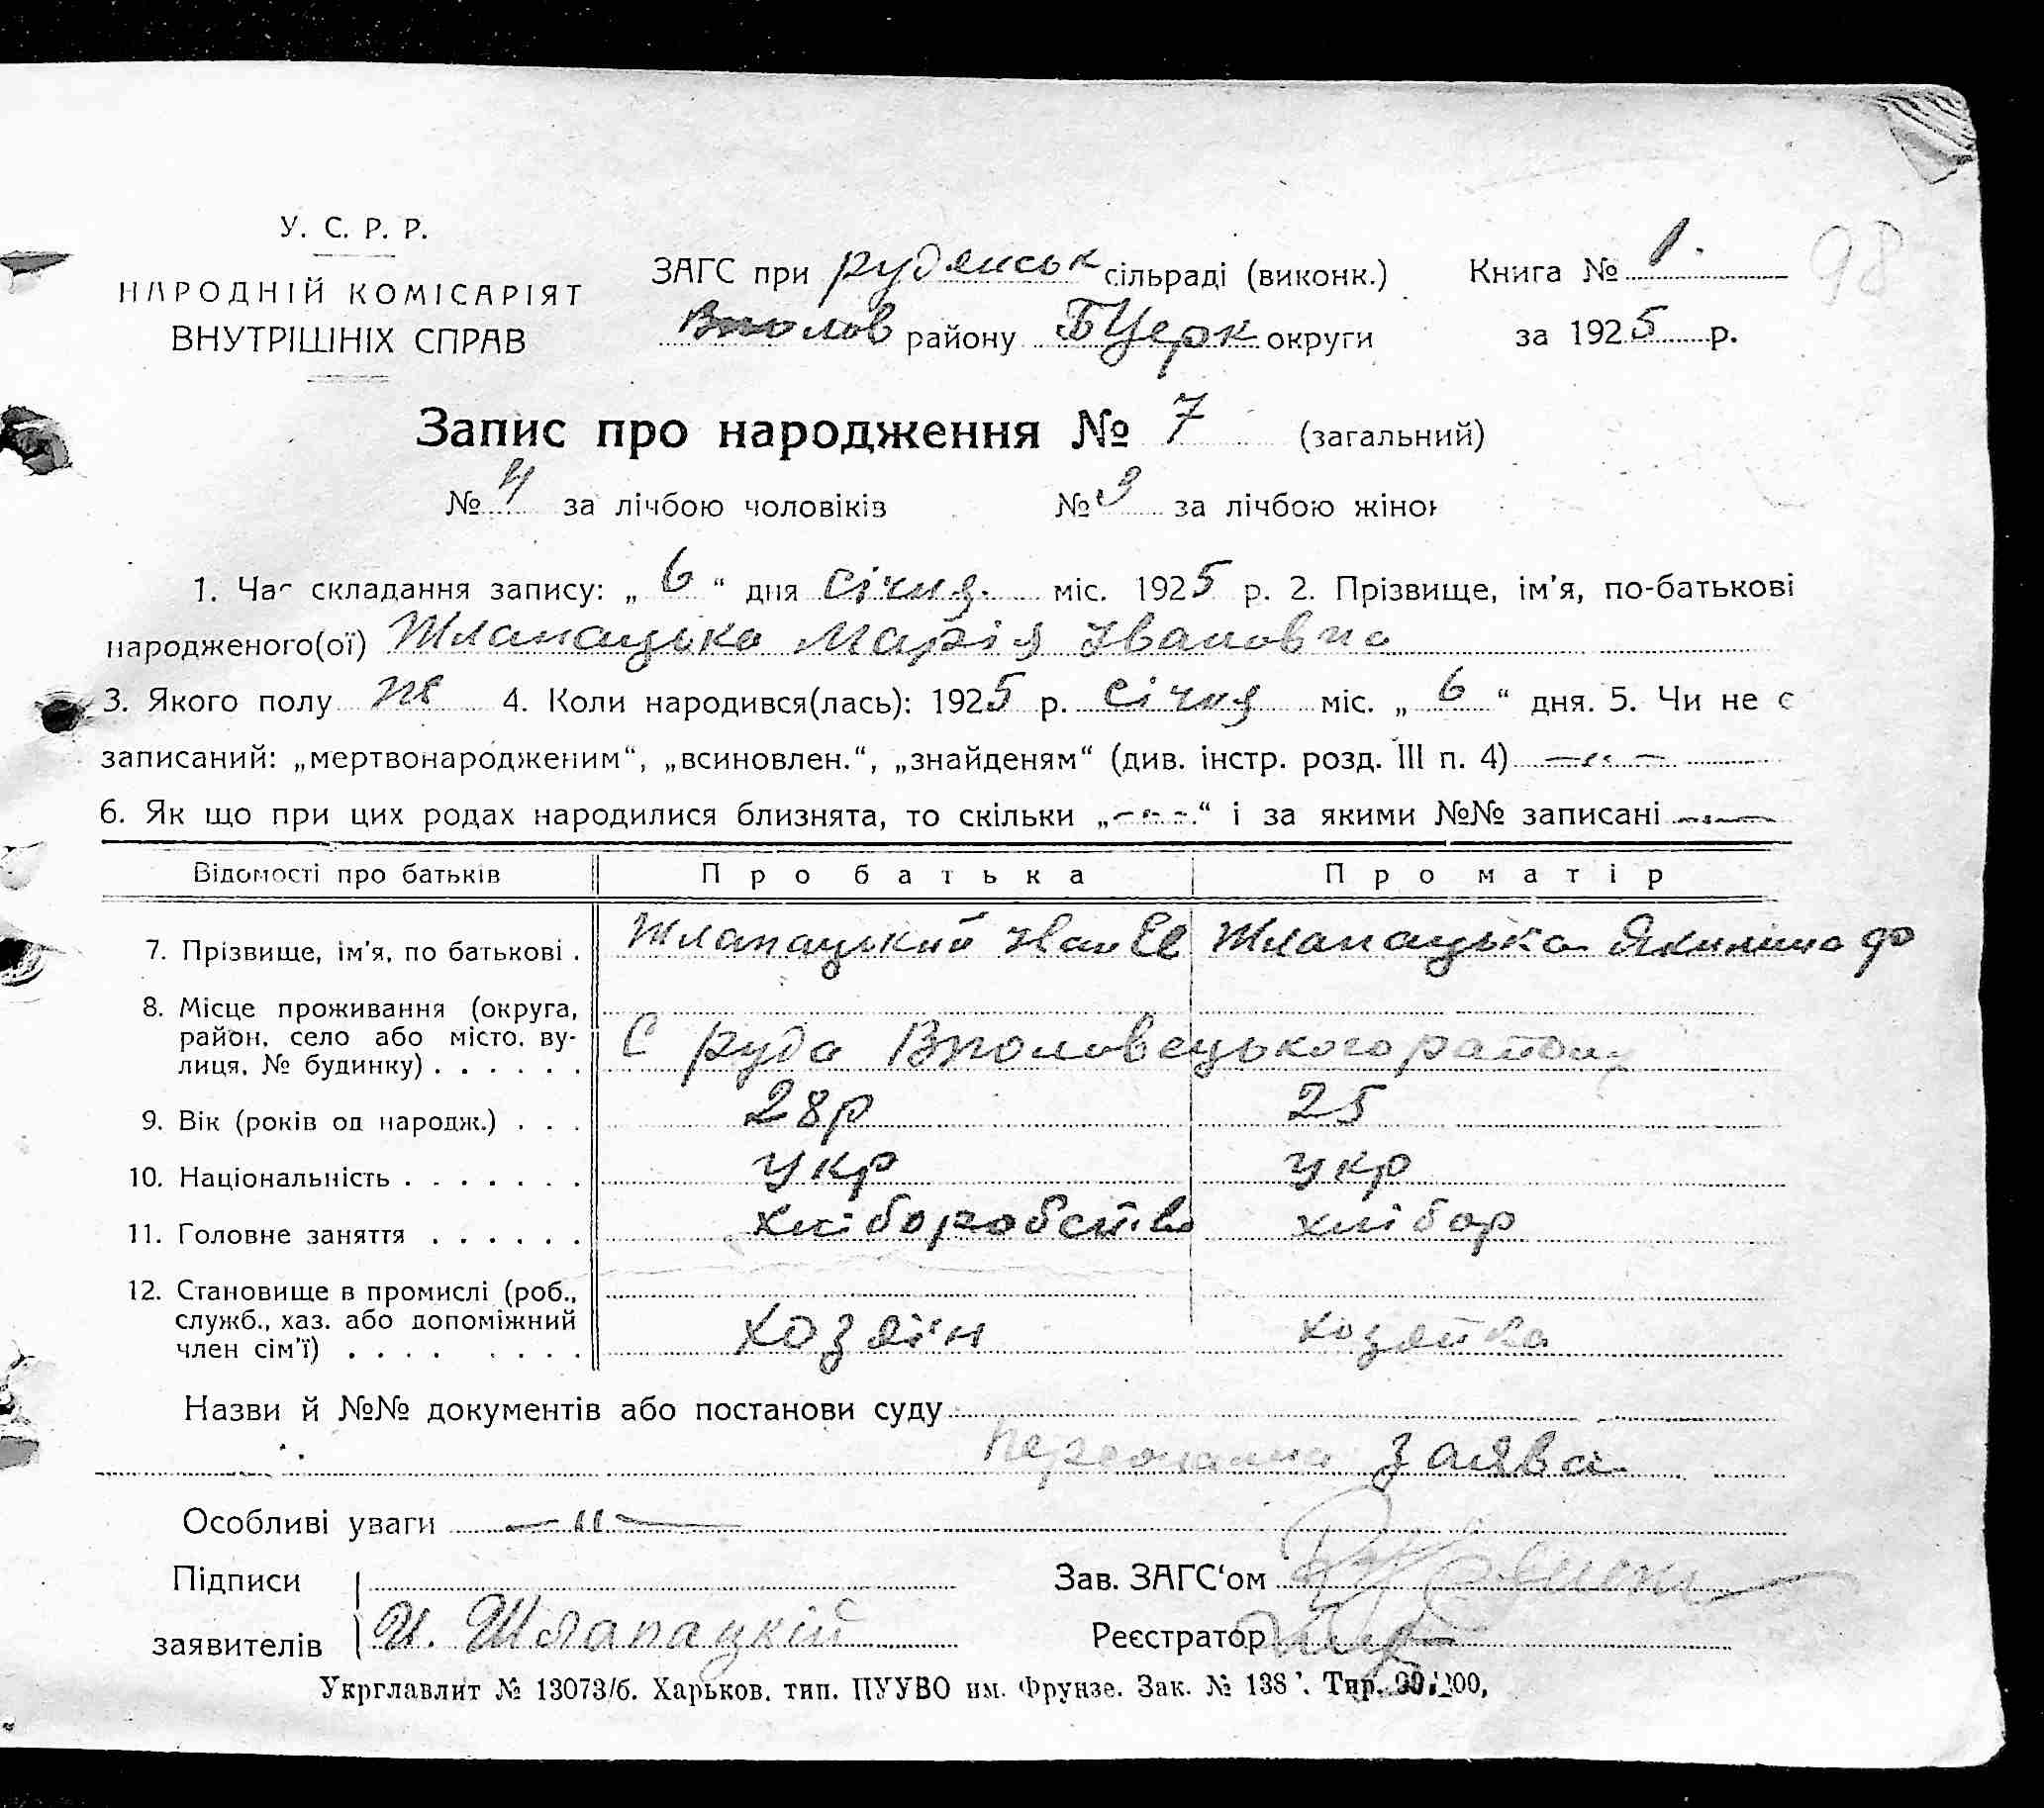 98
У. С. Р. Р.
НАРОДНІЙ КОМІСАРІЯТ
ВНУТРІШНІХ СПРАВ
ЗАГС при рудянськ сільраді (виконк.)
Книга № 1.
району БЦерк округи
за 1925 р.
Запис про народження № 7 (загальний)
№ 4 за лічбою чоловіків № 3 за лічбою жінок
1. Час складання запису: „ 6 “ дня січня. міс. 1925 р. 2. Прізвище, ім’я, по-батькові
народженого(ої) Шлапацька Марія Івановна
3. Якого полу ж 4. Коли народився(лась): 1925 р. січня міс. „ 6 “ дня. 5. Чи не є
записаний: „мертвонародженим“, „всиновлен.“, „знайденям“ (див. інстр. розд. III п. 4) —〃—
6. Як що при цих родах народилися близнята, то скільки „---“ і за якими №№ записані —
Відомості про батьків Про батька Про матір
7. Прізвище, ім’я, по батькові . Шлапацький Іван Єв Шлапацька Якилина фо
8. Місце проживання (округа,
район, село або місто, ву-
лиця, № будинку) . . . . . . С руда Вполовецького району
9. Вік (років од народж.) . . . 28р 25
10. Національність . . . . . . . укр укр
11. Головне заняття . . . . . . хліборобство хлібор
12. Становище в промислі (роб.,
служб., хаз. або допоміжний
член сім’ї) . . . . . . . . хозяїн хозяйка
Назви й №№ документів або постанови суду
персональна заява
Особливі уваги —〃—
Підписи
Зав. ЗАГС‘ом
заявителів И. Шлапацкій
Реєстратор
Укрглавлит № 13073/б. Харьков. тип. ПУУВО им. Фрунзе. Зак. № 138 Тир.